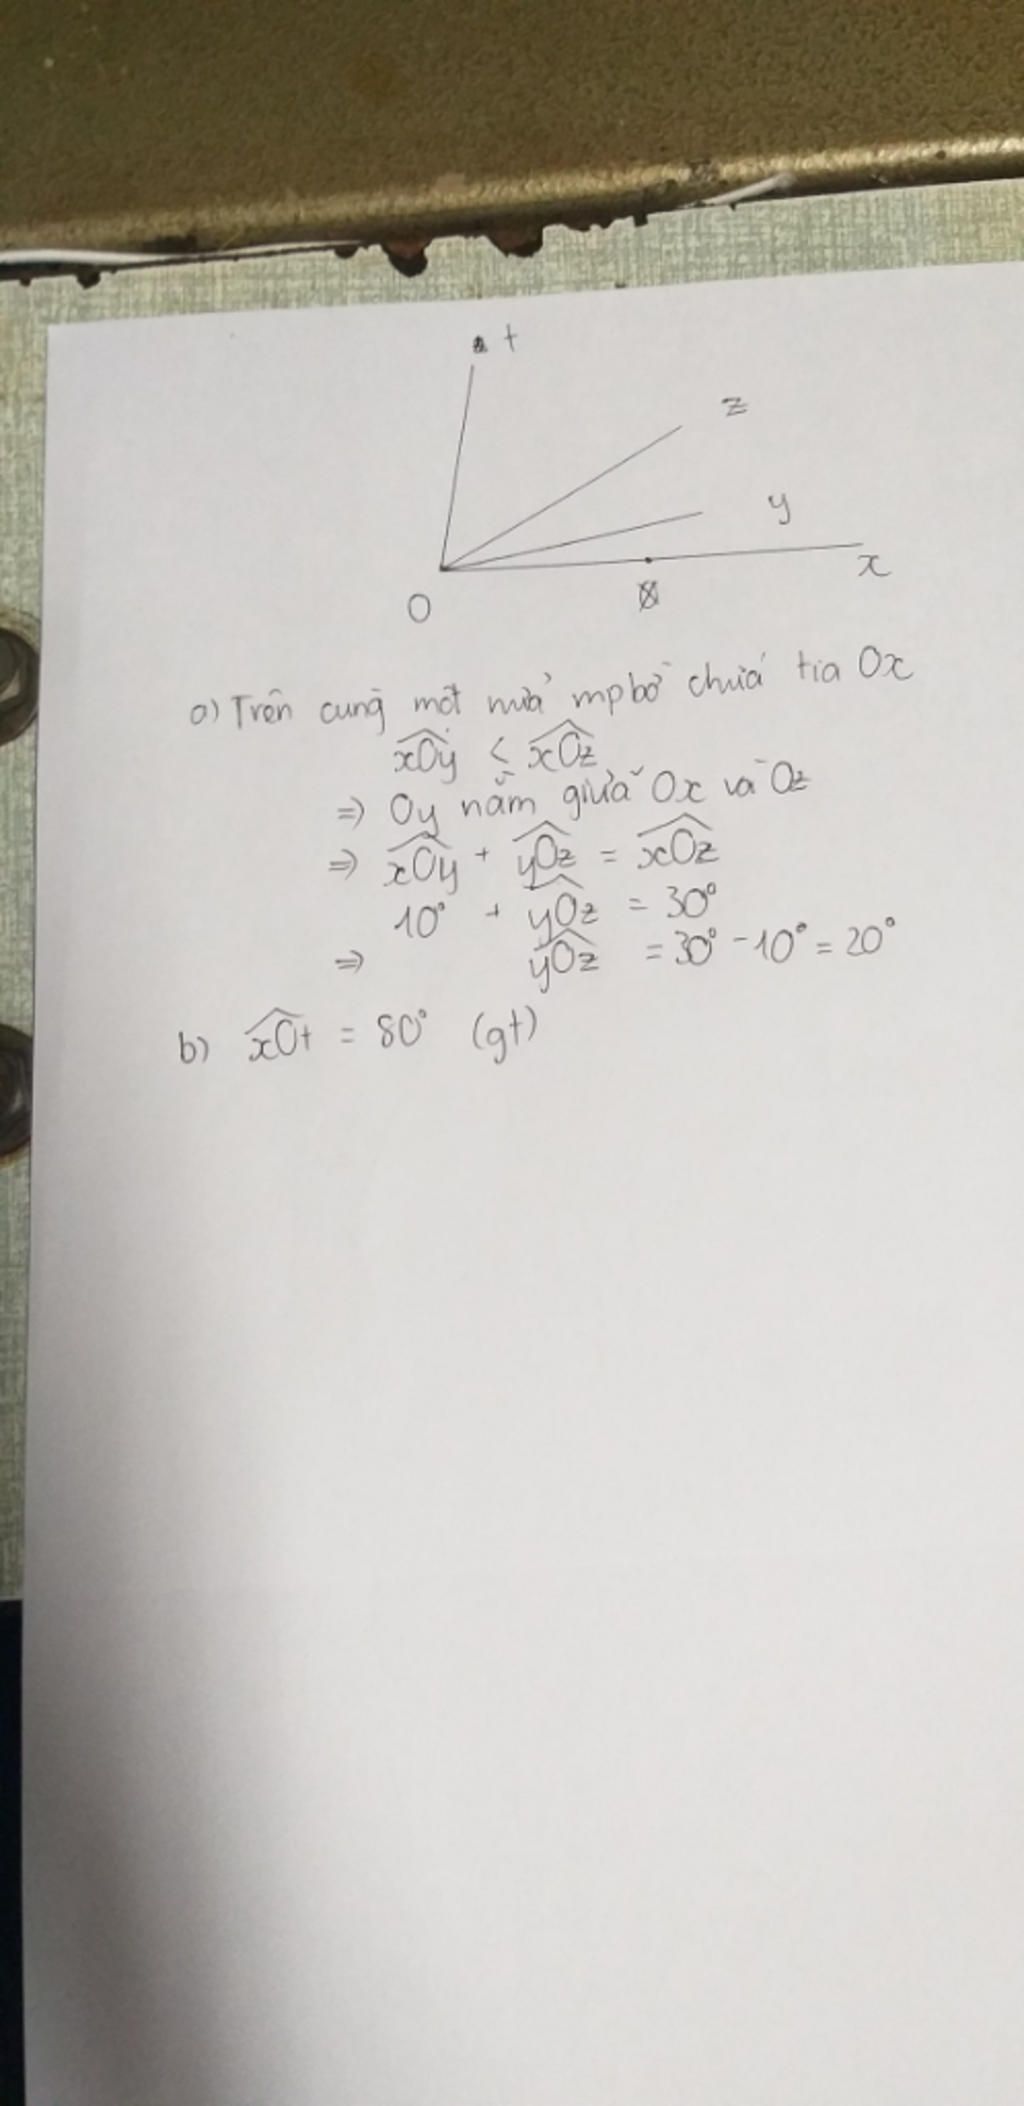 t
z
y
x
O
a) Trên cùng một nửa mp bờ chứa tia Ox
xOy < xOz
=> Oy nằm giữa Ox và Oz
=> xOy + yOz = xOz
10° + yOz = 30°
=> yOz = 30° - 10° = 20°
b) xOt = 80° (gt)